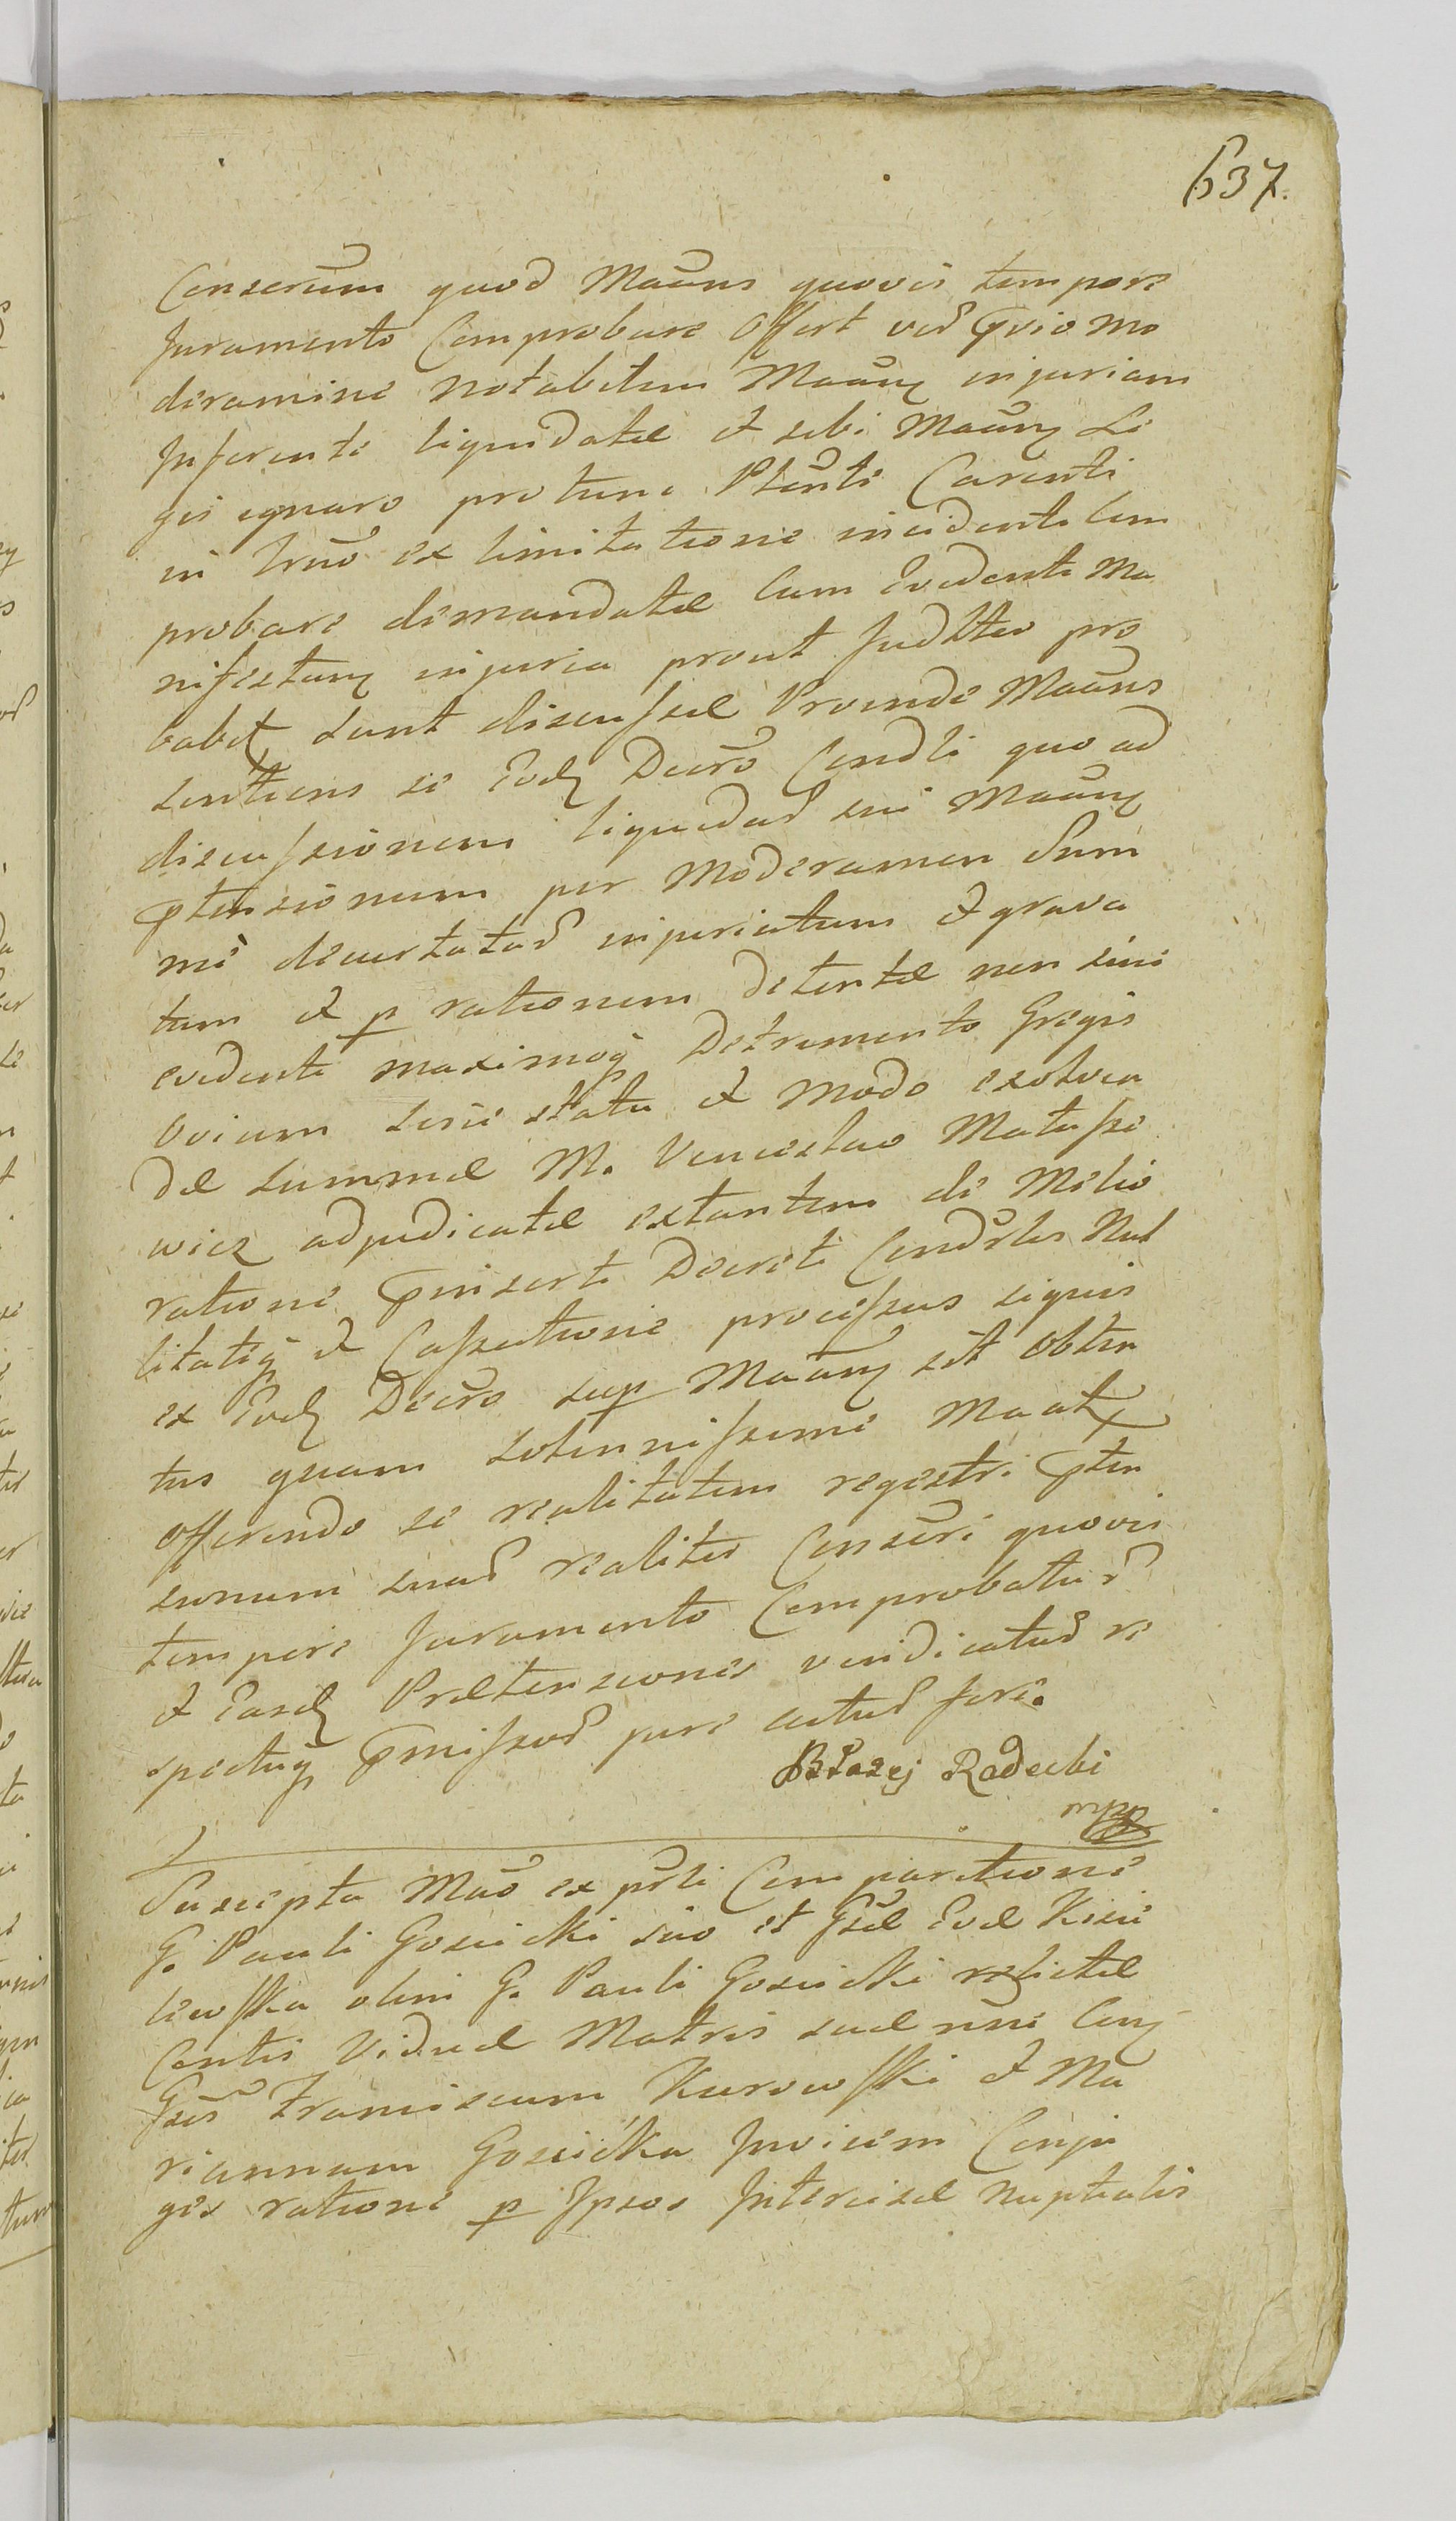 637.
Conserum quod Maãns quovis tempore
Juramento Comprobare offert ved prvio Mo
deramine notabilem Maãnq injuriam
Inferente liquidatæ et sibi Maãnq Le
gis ignaro pro tunc Ptẽnti Carenti
in Trnõ ex limitatione incidente com
probare demandatæ Cum Evidenti Ma
nifestanq injuria prout Judltes pro
babit sunt discussæ Proinde Maãns
sentiens se Eodq Decrõ Condli quo ad
discussionem liquidad sui Maãnq
ptensionum per Moderamen Sum
mè decurtatad injuriatum et grava
tum et p rationem detentæ non sine
evidenti maximoq Detrimento Gregis
Ovium sine statu et modo exolven
dæ summæ M. Venceslao Matusze
wicz adjudicatæ extantem de Melio
ratione prinserti Decreti Condrles Nul
litatiq et Cassatione processus siquis
ex Eodq Decrõ sup Maãnq sit obten
tus quam solennissime Maatx
offerendo se realitatem regestri pten
sionum suad realites Conseri quovis
tempore Juramento Comprobatud
et Easdq Prætensiones vindicatud re
spectuq prmissod jure actud fore.
Błazej Radecki
mpp
Suscepta Mãõ ex prli Comparitione
G. Pauli Gosicki suo et Gsæ Evæ Kisie
lewska olim G. Pauli Gosicki relictæ
Contis Viduæ Matris suæ nñe Conq
Gses Franciscum Kurowski et Ma
riannam Gosicka Invicem Conju
ges ratione p Ipsos Intercisæ nuptialis